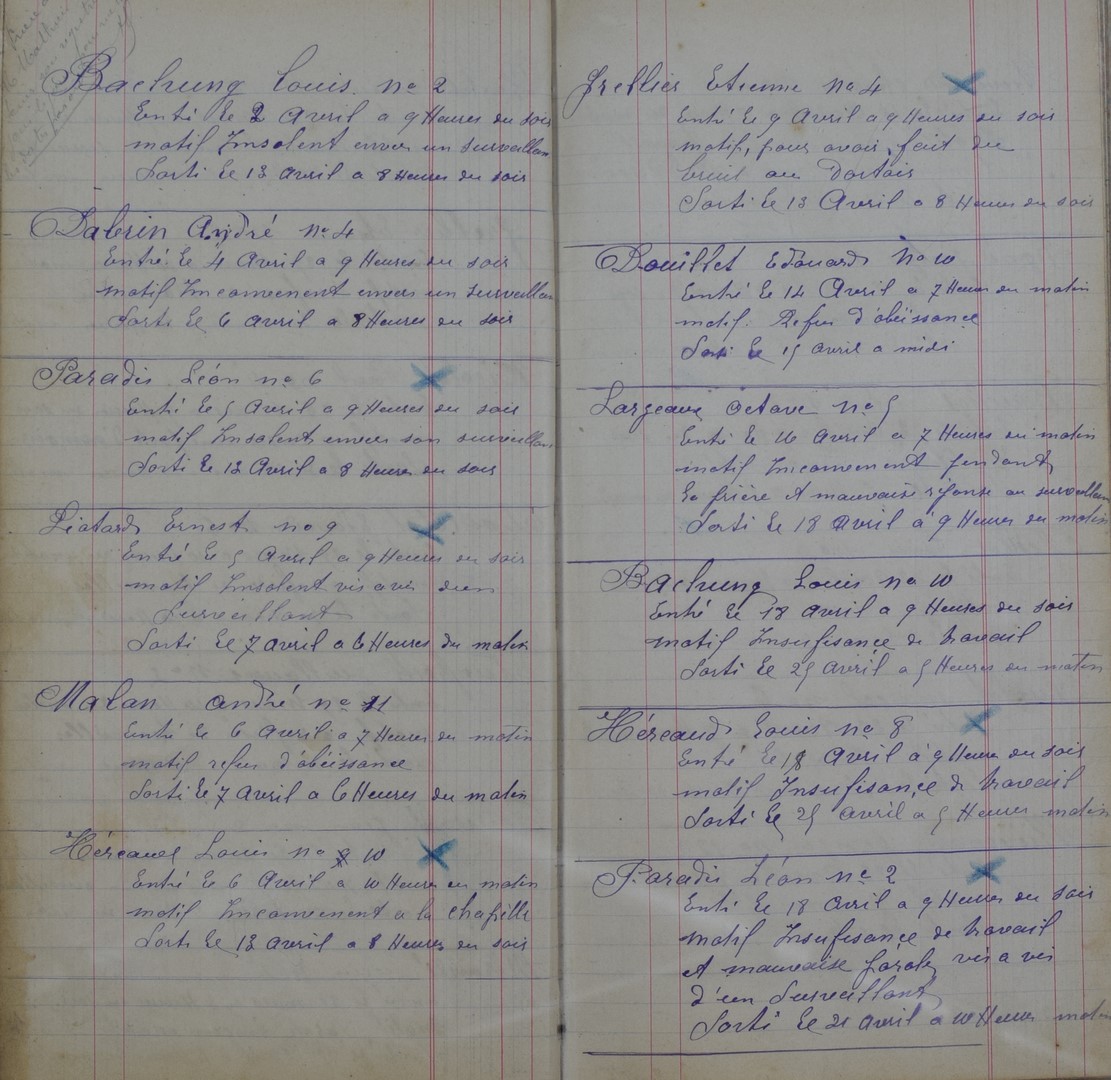 Bachung Louis. no 2
Entré le 2 Avril a 9 Heures du soir
motif Insolent envers un surveillan
Sorti le 13 Avril a 8 Heures du soir
Dabrin André no 4
Entré le 4 Avril a 9 Heures du soir
motif Inconvenent envers un surveillan
Sorti le 6 Avril a 8 Heures du soir
Paradis Léon no 6
Entré le 5 Avril a 9 Heures du soir
motif Insolent envers son surveillan
Sorti le 13 Avril a 8 Heures du soir
Liatard Ernest no 9
Entré le 5 Avril a 9 Heures du soir
motif Insolent vis a vis dun
Surveillant
Sorti le 7 Avril a 6 Heures du matin
Malan andré no 11
Entré le 6 Avril a 7 Heures du matin
motif refus d'obéissance
Sorti le 7 Avril a 6 Heures du matin
Héreaud Louis no 10
Entré le 6 Avril a 10 Heures du matin
motif Inconvenent a la chapelle
Sorti le 13 Avril a 8 Heures du soir
Grellier Etienne no 4
Entré le 9 Avril a 9 Heures du soir
motif, pour avoir fait du
bruit au Dortoir
Sorti le 13 Avril a 8 Heures du soir
Bouillet Edouard no 10
Entré le 14 Avril a 7 Heures du matin
motif. Refus d'obéissance
Sorti le 15 Avril a midi
Largeaux Octave no 5
Entré le 16 Avril a 7 Heures du matin
motif Inconvenent pendant
la prière et mauvaise réponse au surveillan
Sorti le 18 Avril à 9 Heures du matin
Bachung Louis no 10
Entré le 18 Avril a 9 Heures du soir
motif Insufisance de travail
Sorti le 25 Avril a 5 Heures du matin
Héreaud Louis no 8
Entré le 18 Avril à 9 Heures du soir
motif Insufisance de travail
Sorti le 25 Avril a 5 Heures matin
Paradis Léon no 2
Entré le 18 Avril a 9 Heures du soir
motif Insufisance de travail
et mauvaise parole vis a vis
d'un Surveillant
Sorti le 21 Avril a 10 Heures matin